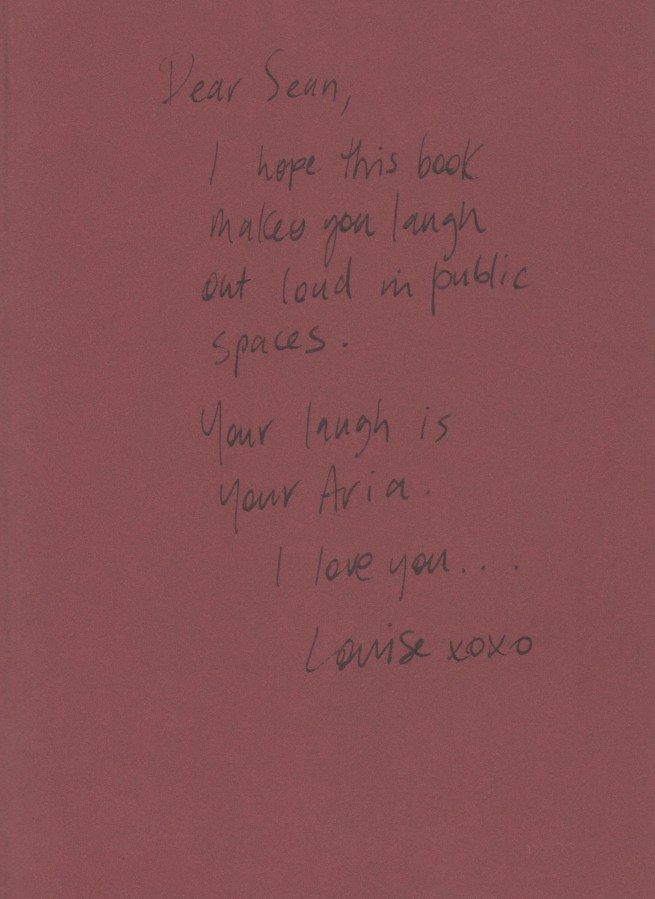 Dear Sean,
I hope this book
makes you laugh
out loud in public
spaces.
Your laugh is
your Aria.
I love you...
Louise xoxo